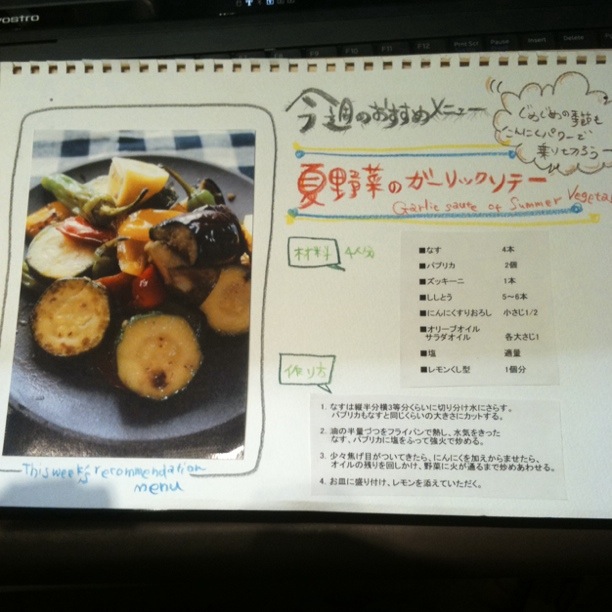 ostro
F9
F10
F11
F12
Prt Scr
Pause
Insert
Delete
今週のおすすめメニュー
じめじめの季節も
にんにくパワーで
乗り切ろう
夏野菜のガーリックソテー
Garlic saute of Summer Vegeta
材料 4人分
■なす 4本
■パプリカ 2個
■ズッキーニ 1本
■ししとう 5〜6本
■にんにくすりおろし 小さじ1/2
■オリーブオイル
サラダオイル 各大さじ1
■塩 適量
■レモンくし型 1個分
作り方
1. なすは縦半分横3等分くらいに切り分け水にさらす。
パプリカもなすと同じくらいの大きさにカットする。
2. 油の半量づつをフライパンで熱し、水気をきった
なす、パプリカに塩をふって強火で炒める。
3. 少々焦げ目がついてきたら、にんにくを加えからませたら、
オイルの残りを回しかけ、野菜に火が通るまで炒めあわせる。
4. お皿に盛り付け、レモンを添えていただく。
This week's recommendation
menu